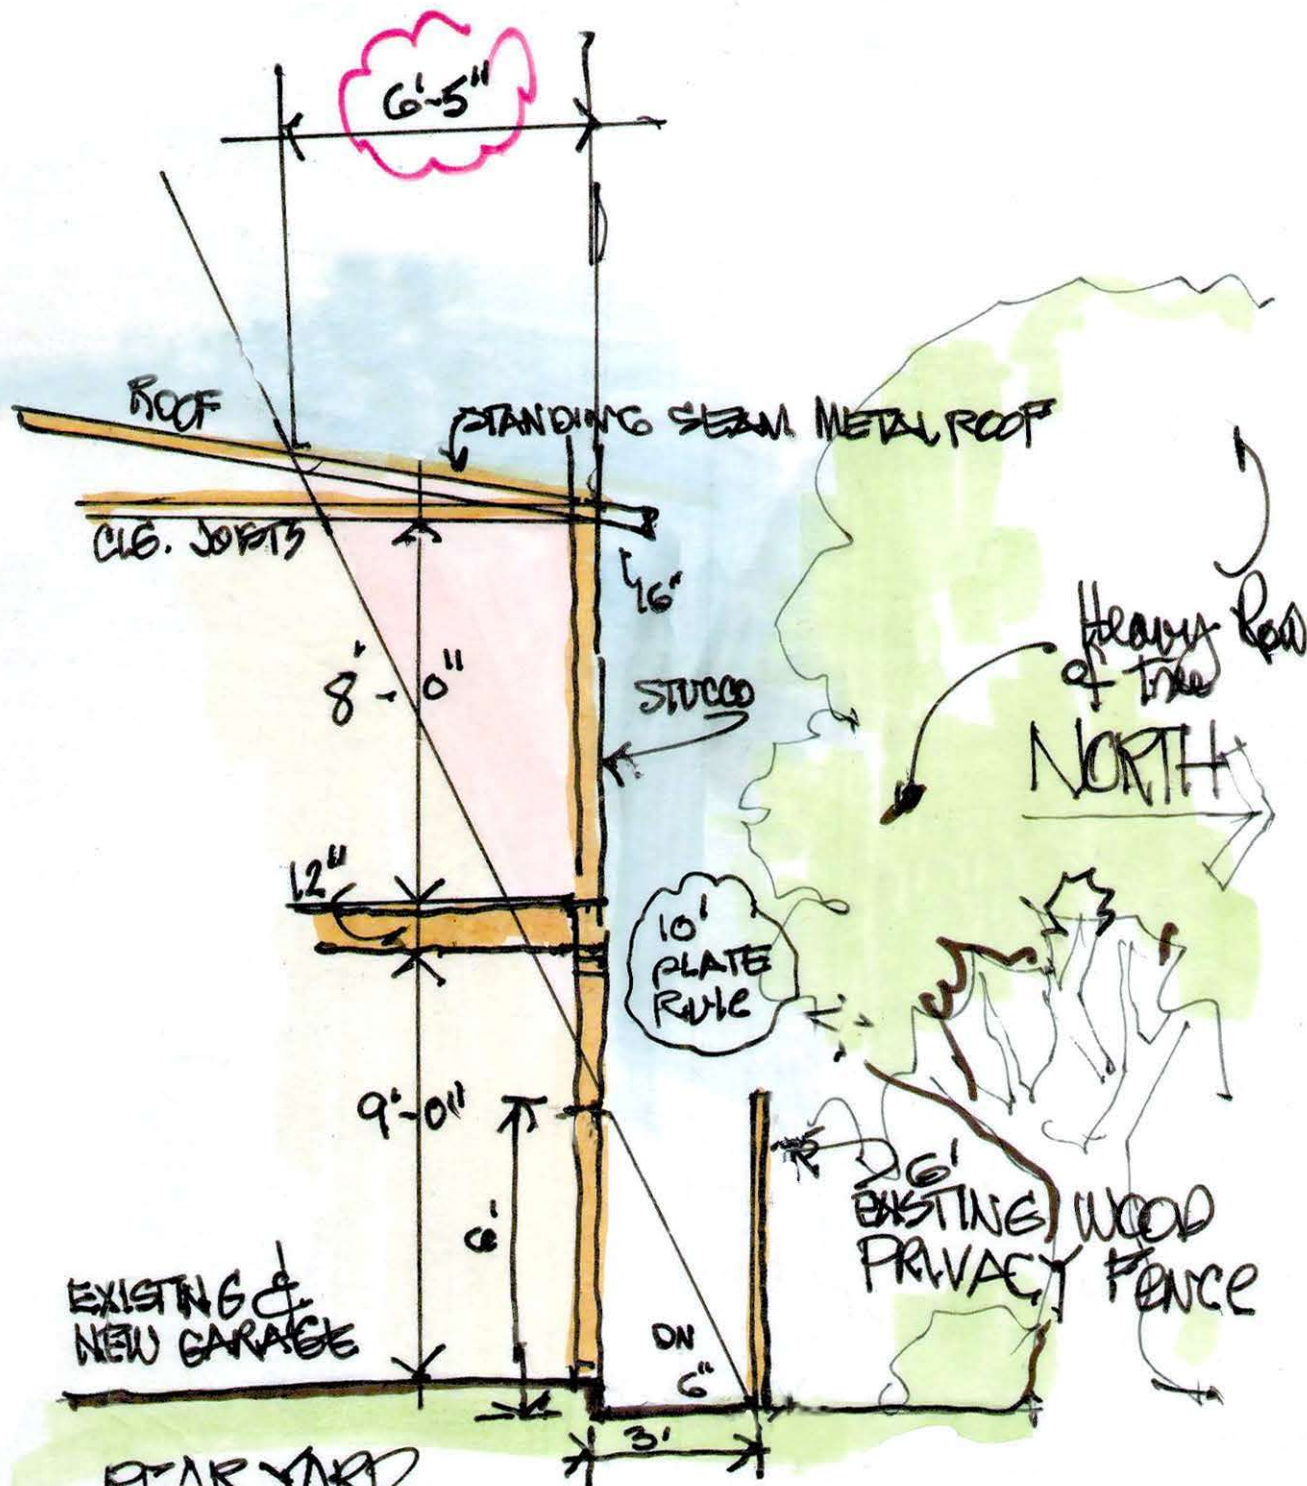 6'-5"
ROOF
STANDING SEAM METAL ROOF
CLG. JOISTS
16"
8'-0"
STUCCO
Heavy Row
of Tree
NORTH
12"
10'
PLATE
RULE
9'-0"
6'
6'
EXISTING WOOD
PRIVACY FENCE
EXISTING &
NEW GARAGE
DN
6"
3'
REAR YARD